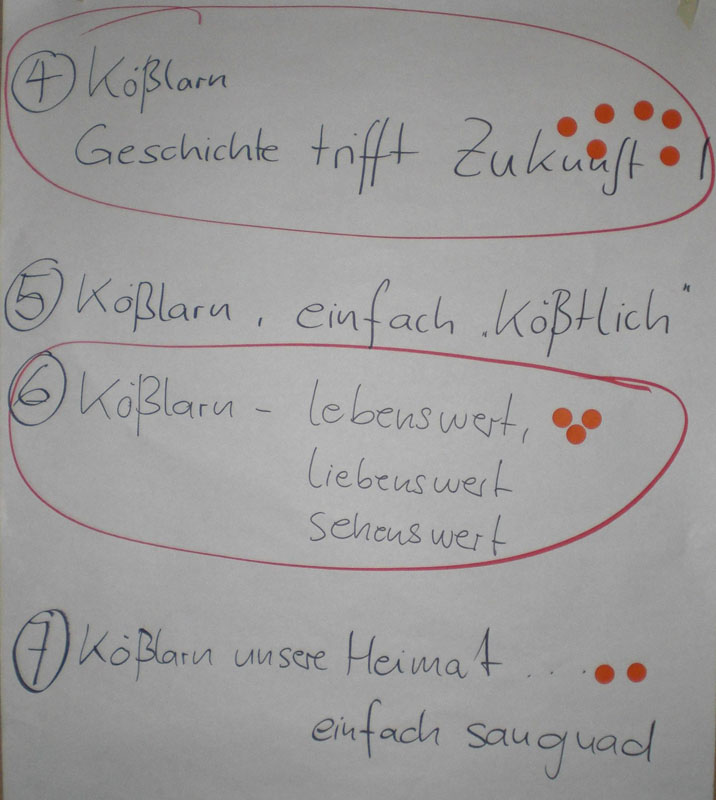 4 Kößlarn
Geschichte trifft Zukunft !
5 Kößlarn, einfach „Kößtlich"
6 Kößlarn - lebenswert,
liebenswert
sehenswert
7 Kößlarn unsere Heimat ...
einfach sauguad